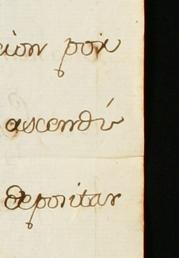 cion por
ascendio
depositar